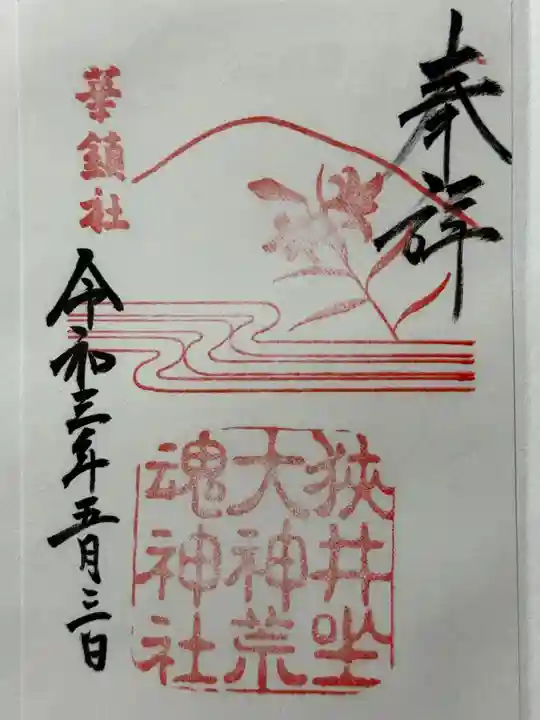 奉祥
狭井坐
大神荒
魂神社
華鎮社
令和三年五月三日